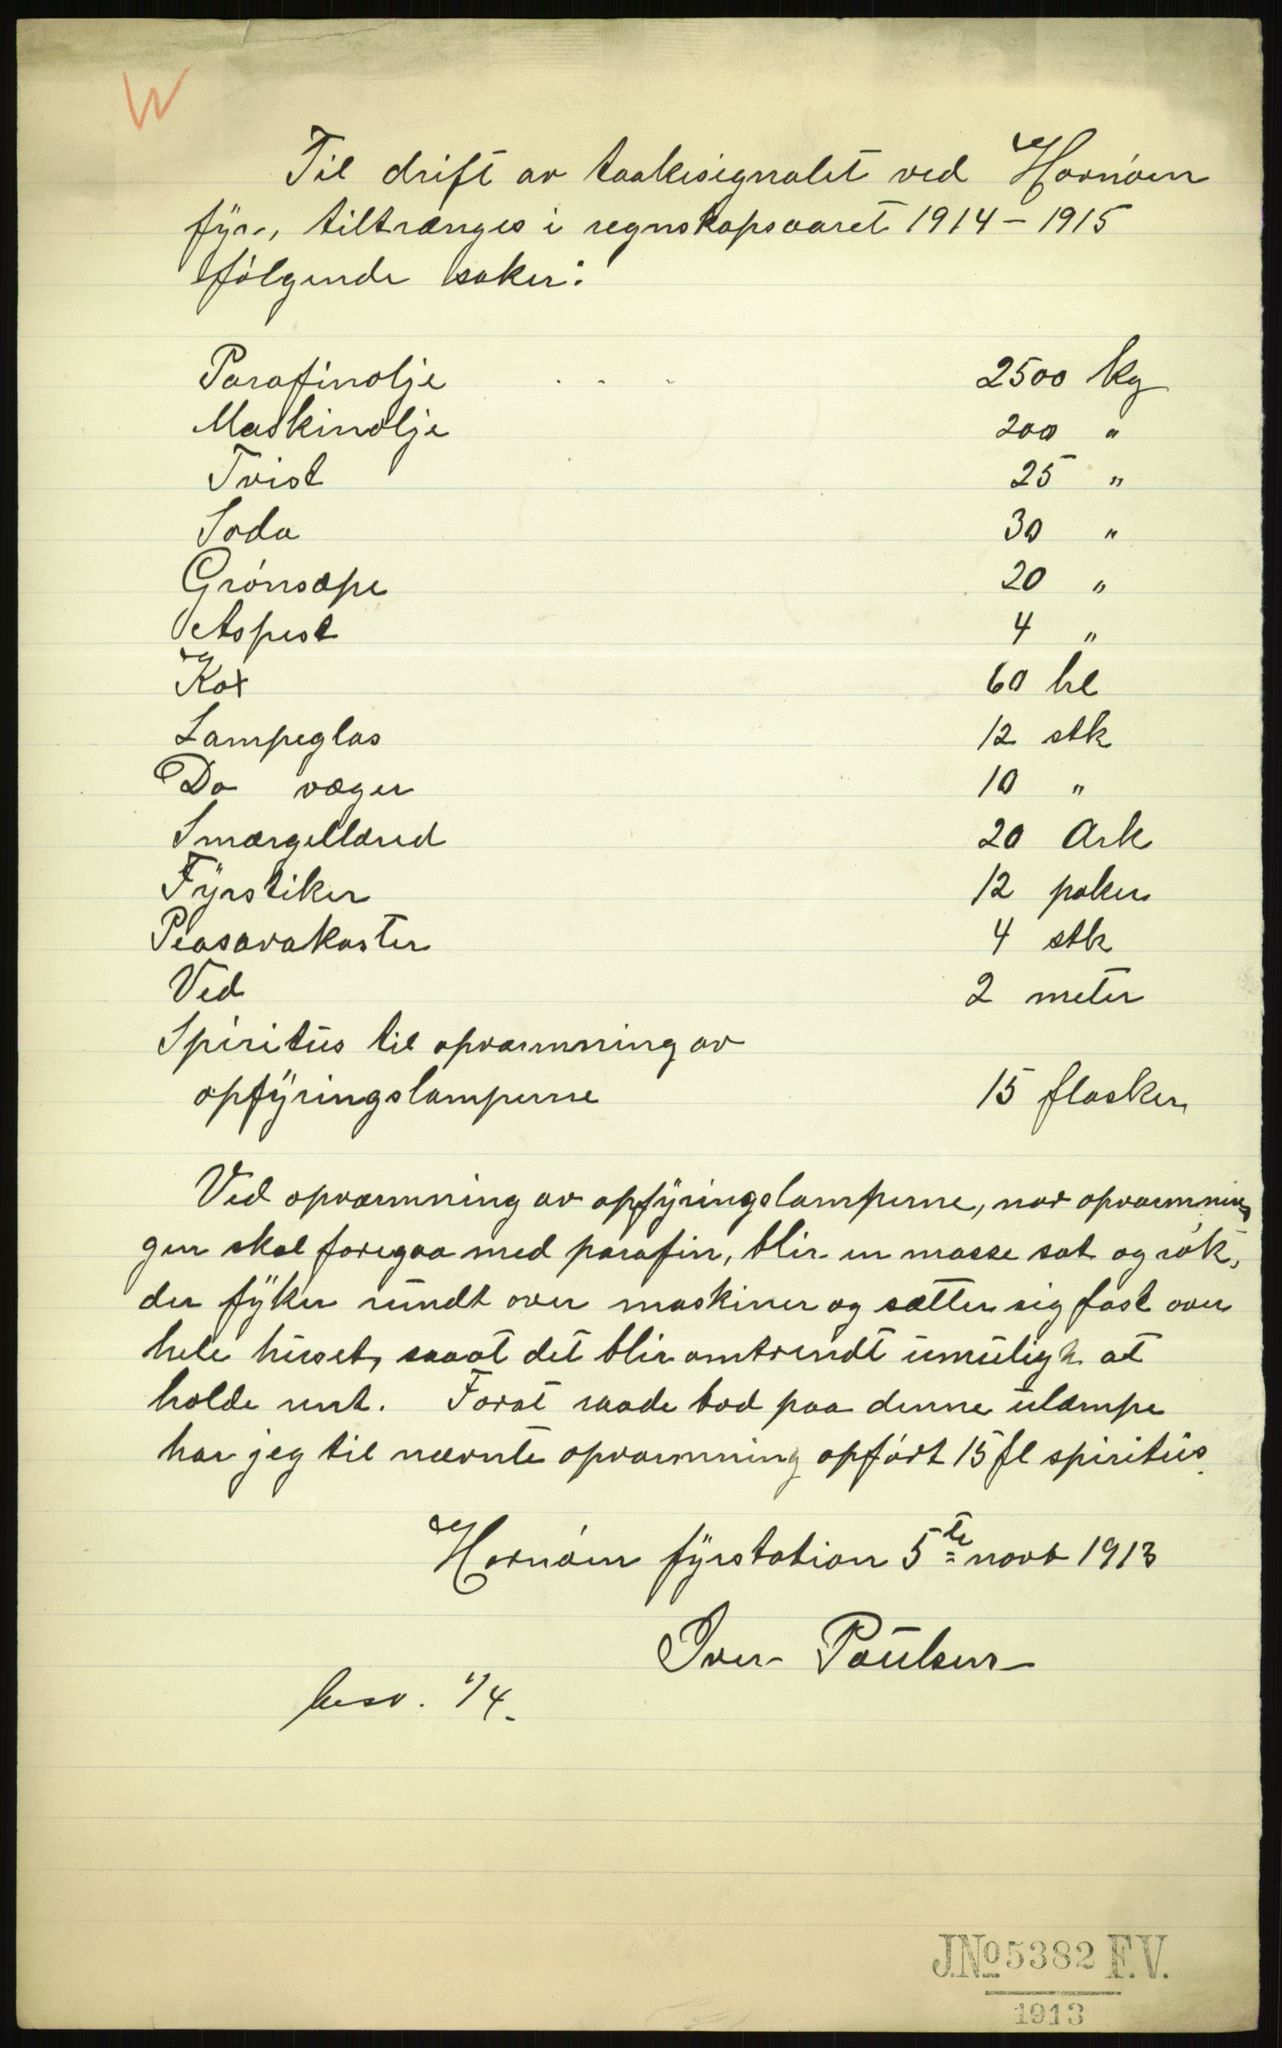 W
Til drift av taakesignalet ved Hornøen
fyr, tiltrænges i regnskapsaaret 1914 – 1915
følgende saker:
Parafinolje . . . 2500 kg
Maskinolje 200 "
Tvist 25 "
Soda 30 "
Grønsæpe 20 "
Aspest 4 "
Kox 60 hl
Lampeglas 12 stk
Do væger 10 "
Smærgellærred 20 Ark
Fyrstiker 12 paker
Peasavakoster 4 stk
Ved 2 meter
Spiritus til opvarmning av
opfyringslamperne 15 flasker
Ved opvarmning av opfyringslamperne, naar opvarmnin
gen skal foregaa med parafin, blir en masse sot og røk,
der fyker rundt over maskiner og sætter sig fast over
hele huset, saaat det blir omtrendt umuligh at
holde rent. Forat raade bod paa denne ulæmpe
har jeg til nævnte opvarmning opført 15 fl spiritus.
Hornøen fyrstation 5te novb 1913
Iver Paulsen
besv. 1/4.
J.No 5382 F.V.
1913